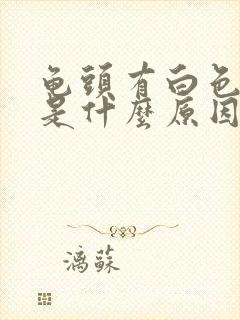 龜頭有白色
是什麼原因
漓蘇